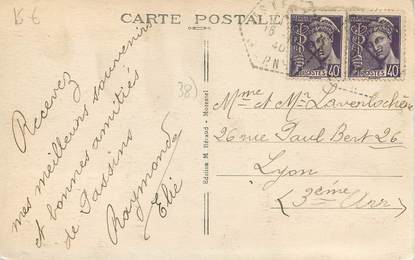 15 €
CARTE POSTALE
18
40
POSTES 40
POSTES 40
38)
Recevez
mes meilleurs souvenirs
et bonnes amitiés
de Passins
Raymonde
Elie
Edition M Béraud - Morestel
Mme et Mr Laventochère
26 rue Paul Bert 26.
Lyon
(3ème Arr)